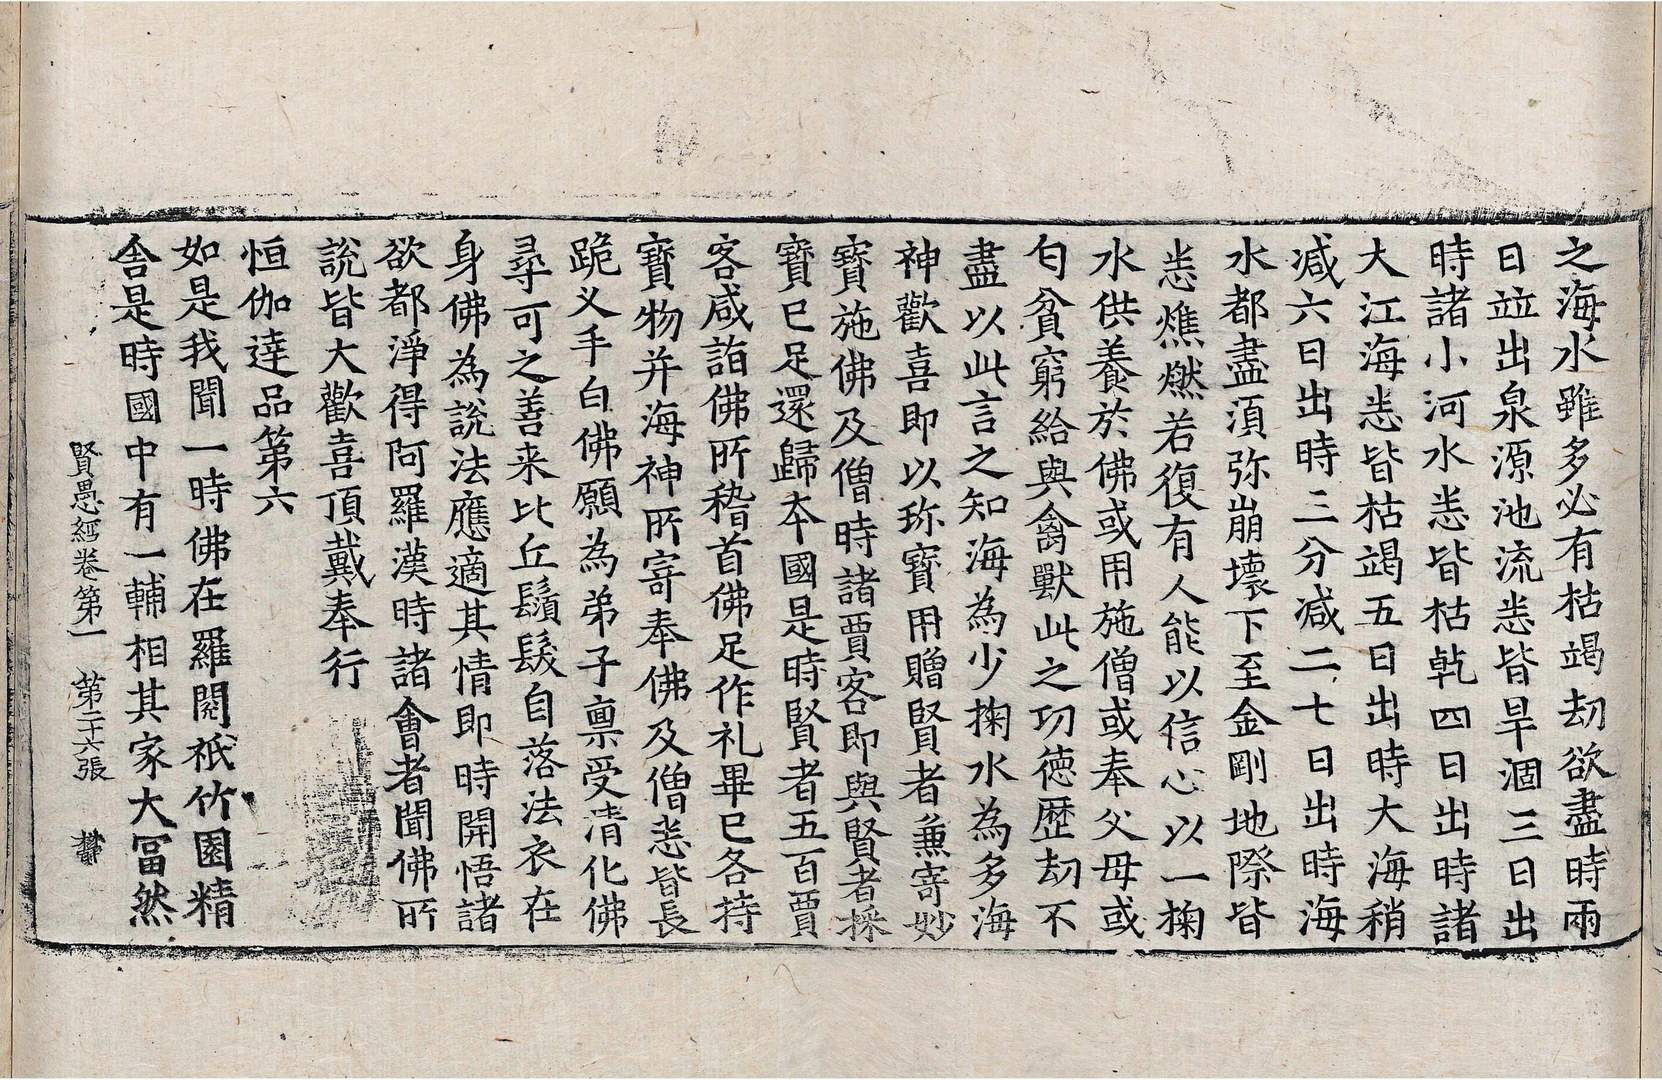 之海水雖多必有枯竭劫欲盡時兩
日竝出泉源池流悉皆旱涸三日出
時諸小河水悉皆枯乾四日出時諸
大江海悉皆枯竭五日出時大海稍
減六日出時三分減二七日出時海
水都盡須弥崩壞下至金剛地際皆
悉燋燃若復有人能以信心以一掬
水供養於佛或用施僧或奉父母或
匃貧窮給與禽獸此之功德歷劫不
盡以此言之知海為少掬水為多海
神歡喜即以珎寶用贈賢者兼寄妙
寶施佛及僧時諸賈客即與賢者採
寶已足還歸本國是時賢者五百賈
客咸詣佛所稽首佛足作礼畢已各持
寶物并海神所寄奉佛及僧悉皆長
跪义手白佛願為弟子禀受清化佛
尋可之善来比丘鬚髮自落法衣在
身佛為說法應適其情即時開悟諸
欲都淨得阿羅漢時諸會者聞佛所
說皆大歡喜頂戴奉行
恒伽達品第六
如是我聞一時佛在羅閱祇竹園精
舍是時國中有一輔相其家大冨然
賢愚經卷第一 第二十六張